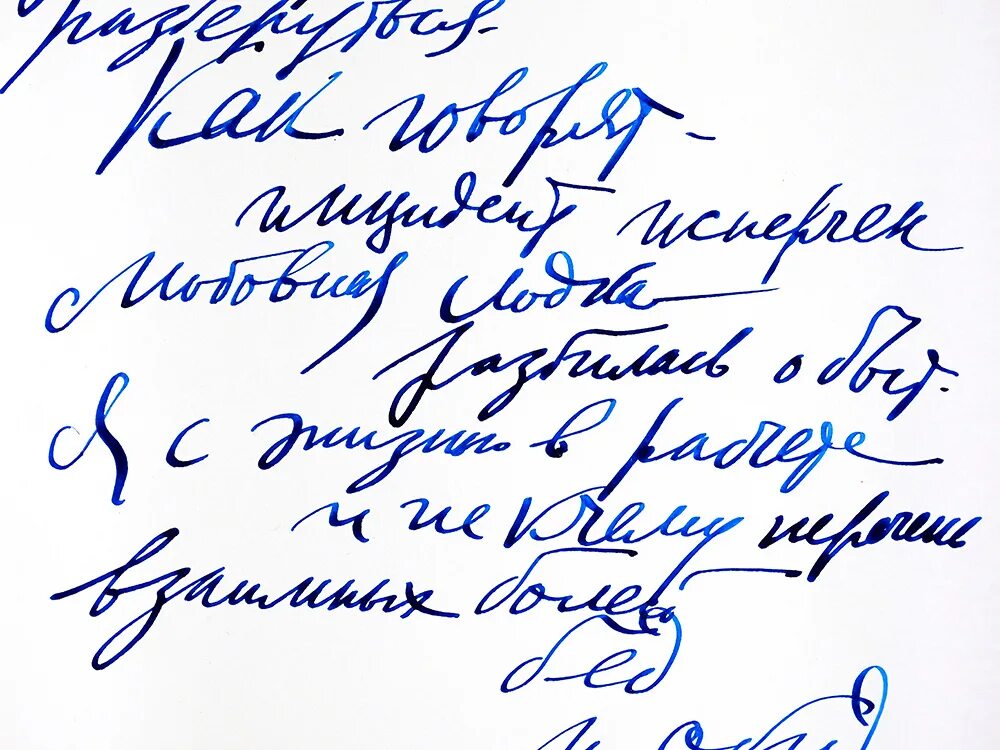 разберуться.
Как говорят -
инцидент исперчен
Любовная лодка
разбилась о быт.
Я с жизнью в расчете
и не к чему перечень
взаимных болей
бед
и обид